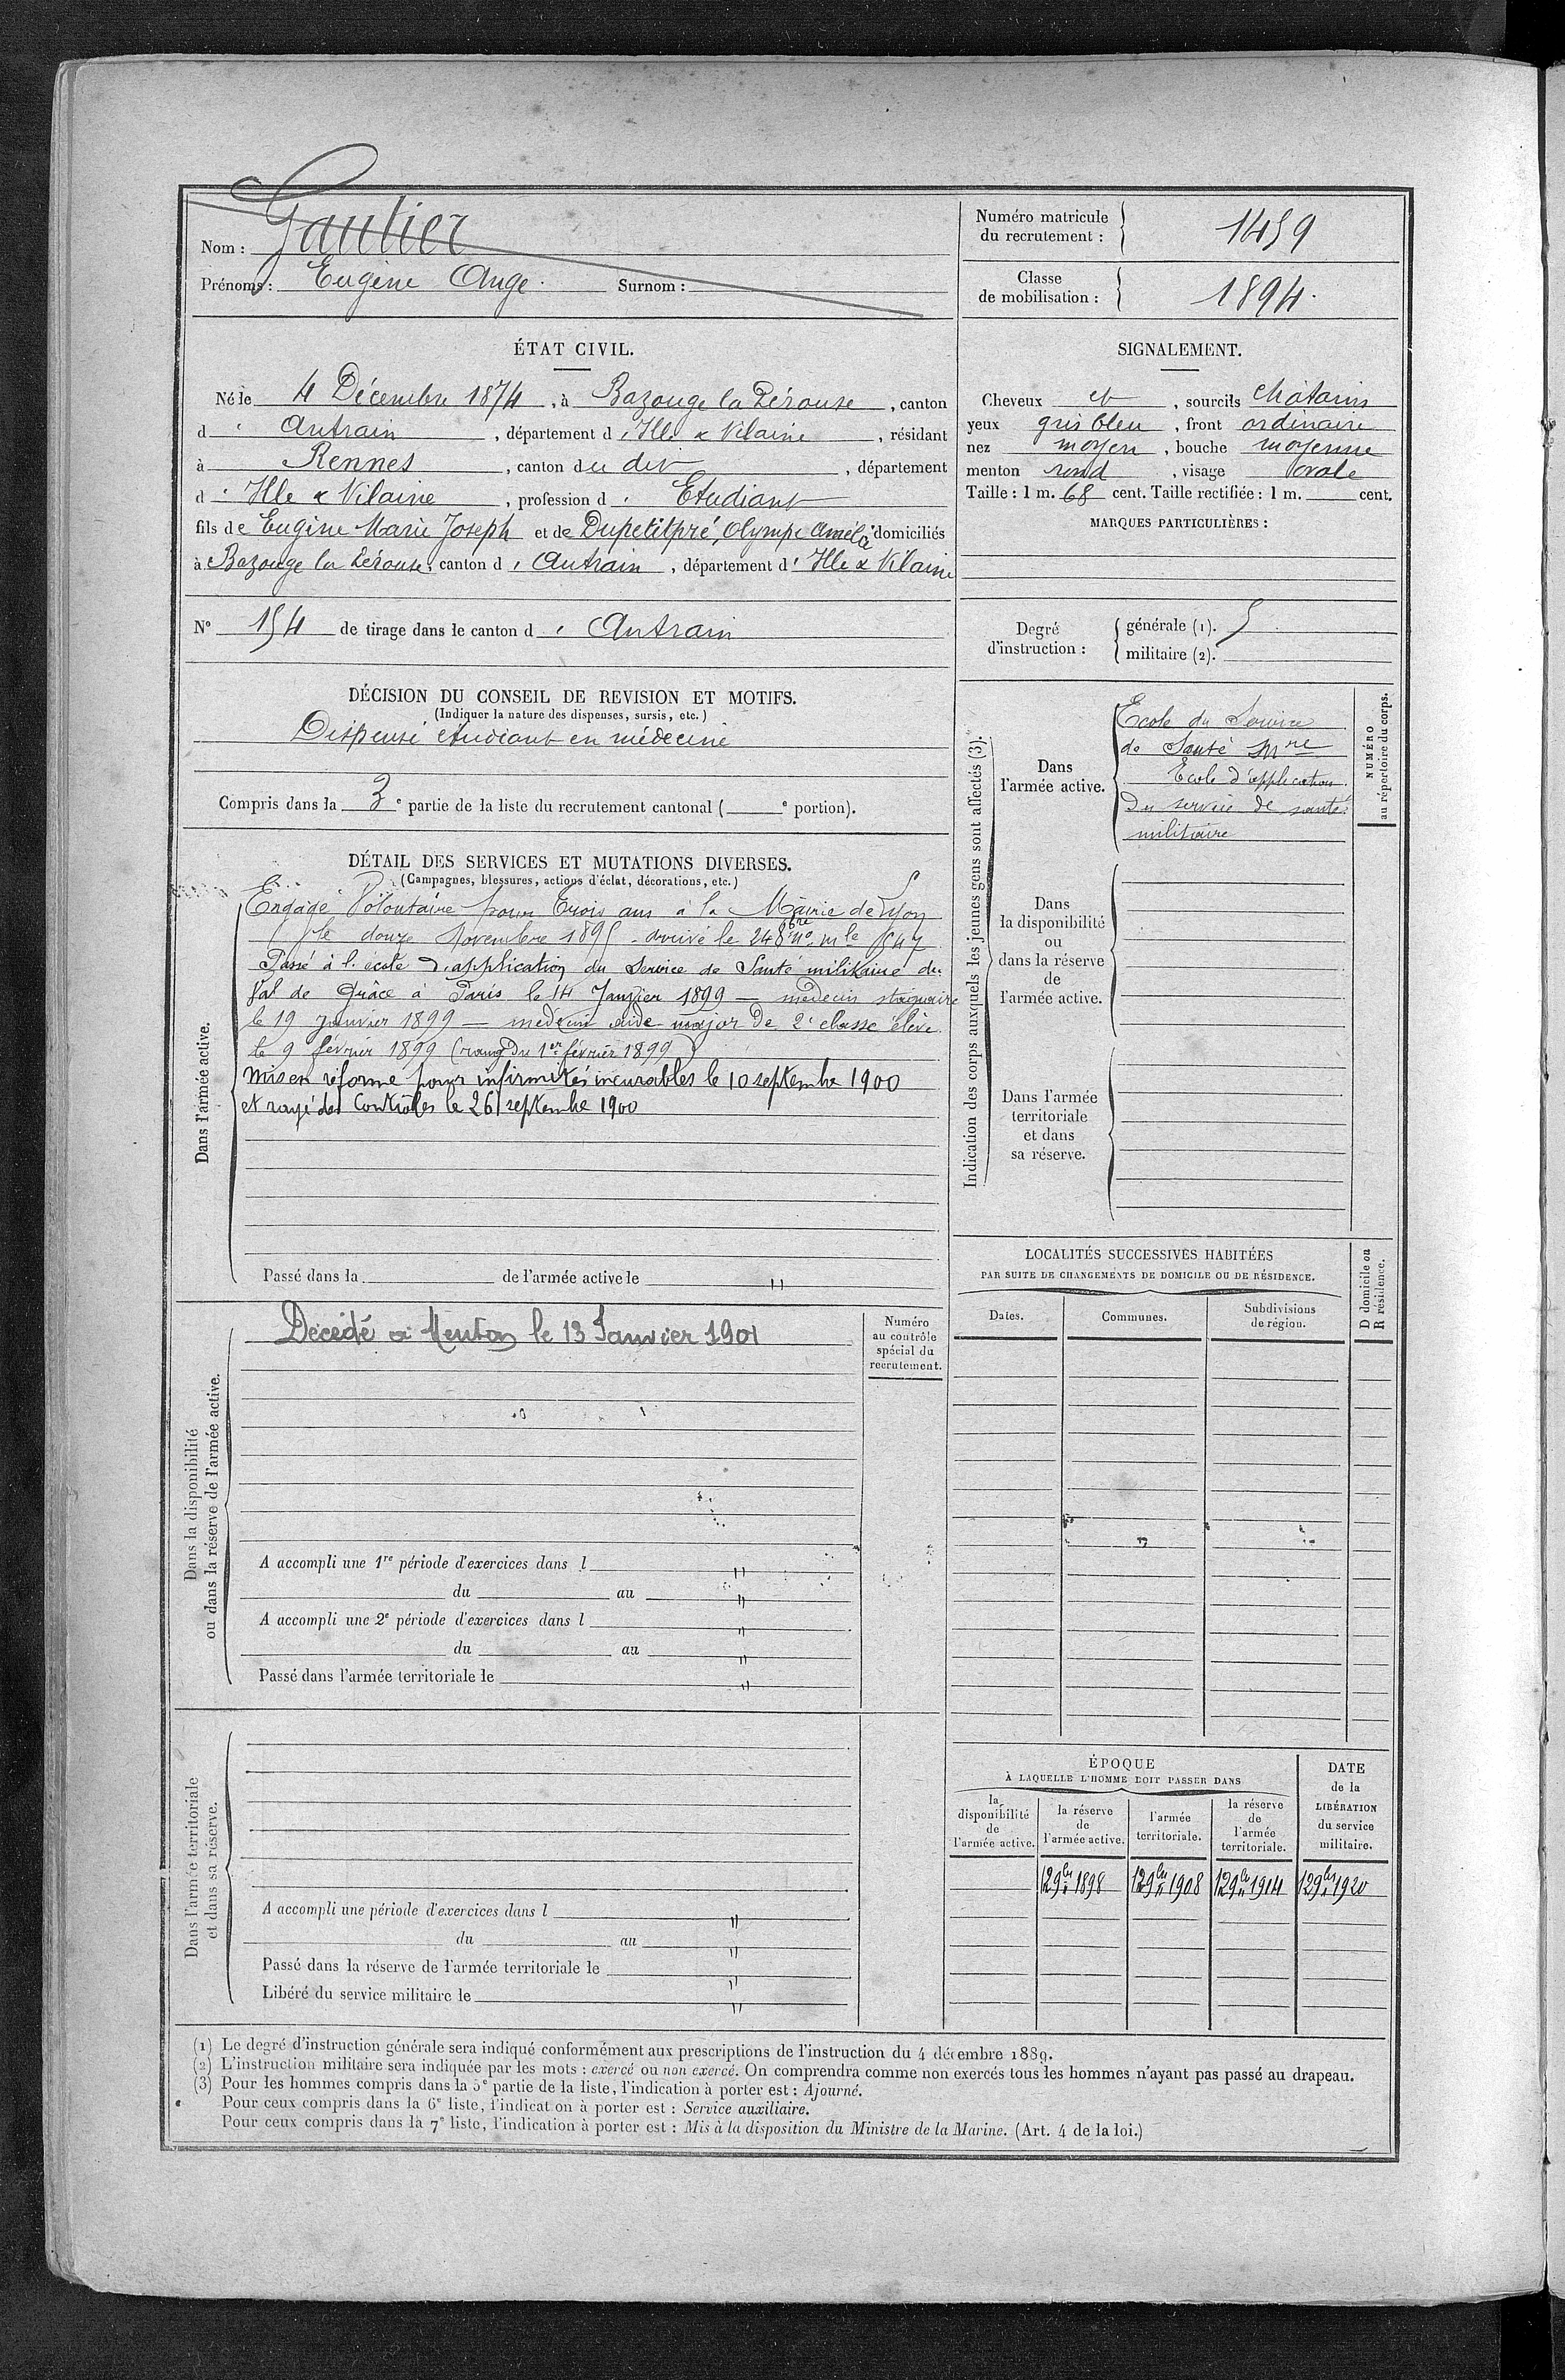 Nom : Gautier
Prénoms : Eugène Ange. Surnom :
Numéro matricule du recrutement : 1459
Classe de mobilisation : 1894.
ÉTAT CIVIL.
Né le 4 Décembre 1874, à Bazouge la Pérouse, canton
d' Antrain, département d' Ille & Vilaine, résidant
à Rennes, canton du dit, département
d' Ille & Vilaine, profession d' Etudiant
fils de Eugène Marie Joseph et de Dupetitpré, Olympe Amélie domiciliés
à Bazouge la Pérouse, canton d' Antrain, département d' Ille & Vilaine
N° 154 de tirage dans le canton d' Antrain
SIGNALEMENT.
Cheveux et, sourcils châtains
yeux gris bleu, front ordinaire
nez moyen, bouche moyenne
menton rond, visage ovale
Taille : 1 m. 68 cent. Taille rectifiée : 1 m. cent.
MARQUES PARTICULIÈRES :
Degré d'instruction : générale (1). 5
militaire (2).
DÉCISION DU CONSEIL DE REVISION ET MOTIFS.
(Indiquer la nature des dispenses, sursis, etc.)
Dispensé étudiant en médecine
Compris dans la 3e partie de la liste du recrutement cantonal ( e portion).
DÉTAIL DES SERVICES ET MUTATIONS DIVERSES.
(Campagnes, blessures, actions d'éclat, décorations, etc.)
Dans l'armée active.
Engagé Volontaire pour trois ans à la Mairie de Lyon
le douze Novembre 1895 - arrivé le 24 8bre no mle
Passé à l'école d'application du Service de Santé militaire du
Val de Grâce à Paris le 14 Janvier 1899 — médecin stagiaire
le 19 janvier 1899 — médecin aide major de 2e classe élève
le 9 février 1899 (rang du 1er février 1899)
Mis en réforme pour infirmités incurables le 10 septembre 1900
et rayé des Contrôles le 26 septembre 1900
Passé dans la de l'armée active le "
Indication des corps auxquels les jeunes gens sont affectés (3).
Dans l'armée active.
Ecole du Service
de Santé Mre
Ecole d'application
du service de santé
militaire
NUMÉRO au répertoire du corps.
Dans la disponibilité ou dans la réserve de l'armée active.
Dans l'armée territoriale et dans sa réserve.
LOCALITÉS SUCCESSIVES HABITÉES
PAR SUITE DE CHANGEMENTS DE DOMICILE OU DE RÉSIDENCE.
D domicile ou R résidence.
Dates. Communes. Subdivisions de région.
Dans la disponibilité ou dans la réserve de l'armée active.
Décédé à Menton le 13 Janvier 1901
Numéro au contrôle spécial du recrutement.
A accompli une 1re période d'exercices dans l "
du au "
A accompli une 2e période d'exercices dans l "
du au "
Passé dans l'armée territoriale le "
Dans l'armée territoriale et dans sa réserve.
A accompli une période d'exercices dans l "
du au "
Passé dans la réserve de l'armée territoriale le "
Libéré du service militaire le "
ÉPOQUE
À LAQUELLE L'HOMME DOIT PASSER DANS
DATE de la LIBÉRATION du service militaire.
la disponibilité de l'armée active. la réserve de l'armée active. l'armée territoriale. la réserve de l'armée territoriale.
12 9bre 1898 12 9bre 1908 12 9bre 1914 12 9bre 1920
(1) Le degré d'instruction générale sera indiqué conformément aux prescriptions de l'instruction du 4 décembre 1889.
(2) L'instruction militaire sera indiquée par les mots : exercé ou non exercé. On comprendra comme non exercés tous les hommes n'ayant pas passé au drapeau.
(3) Pour les hommes compris dans la 5e partie de la liste, l'indication à porter est : Ajourné.
Pour ceux compris dans la 6e liste, l'indication à porter est : Service auxiliaire.
Pour ceux compris dans la 7e liste, l'indication à porter est : Mis à la disposition du Ministre de la Marine. (Art. 4 de la loi.)